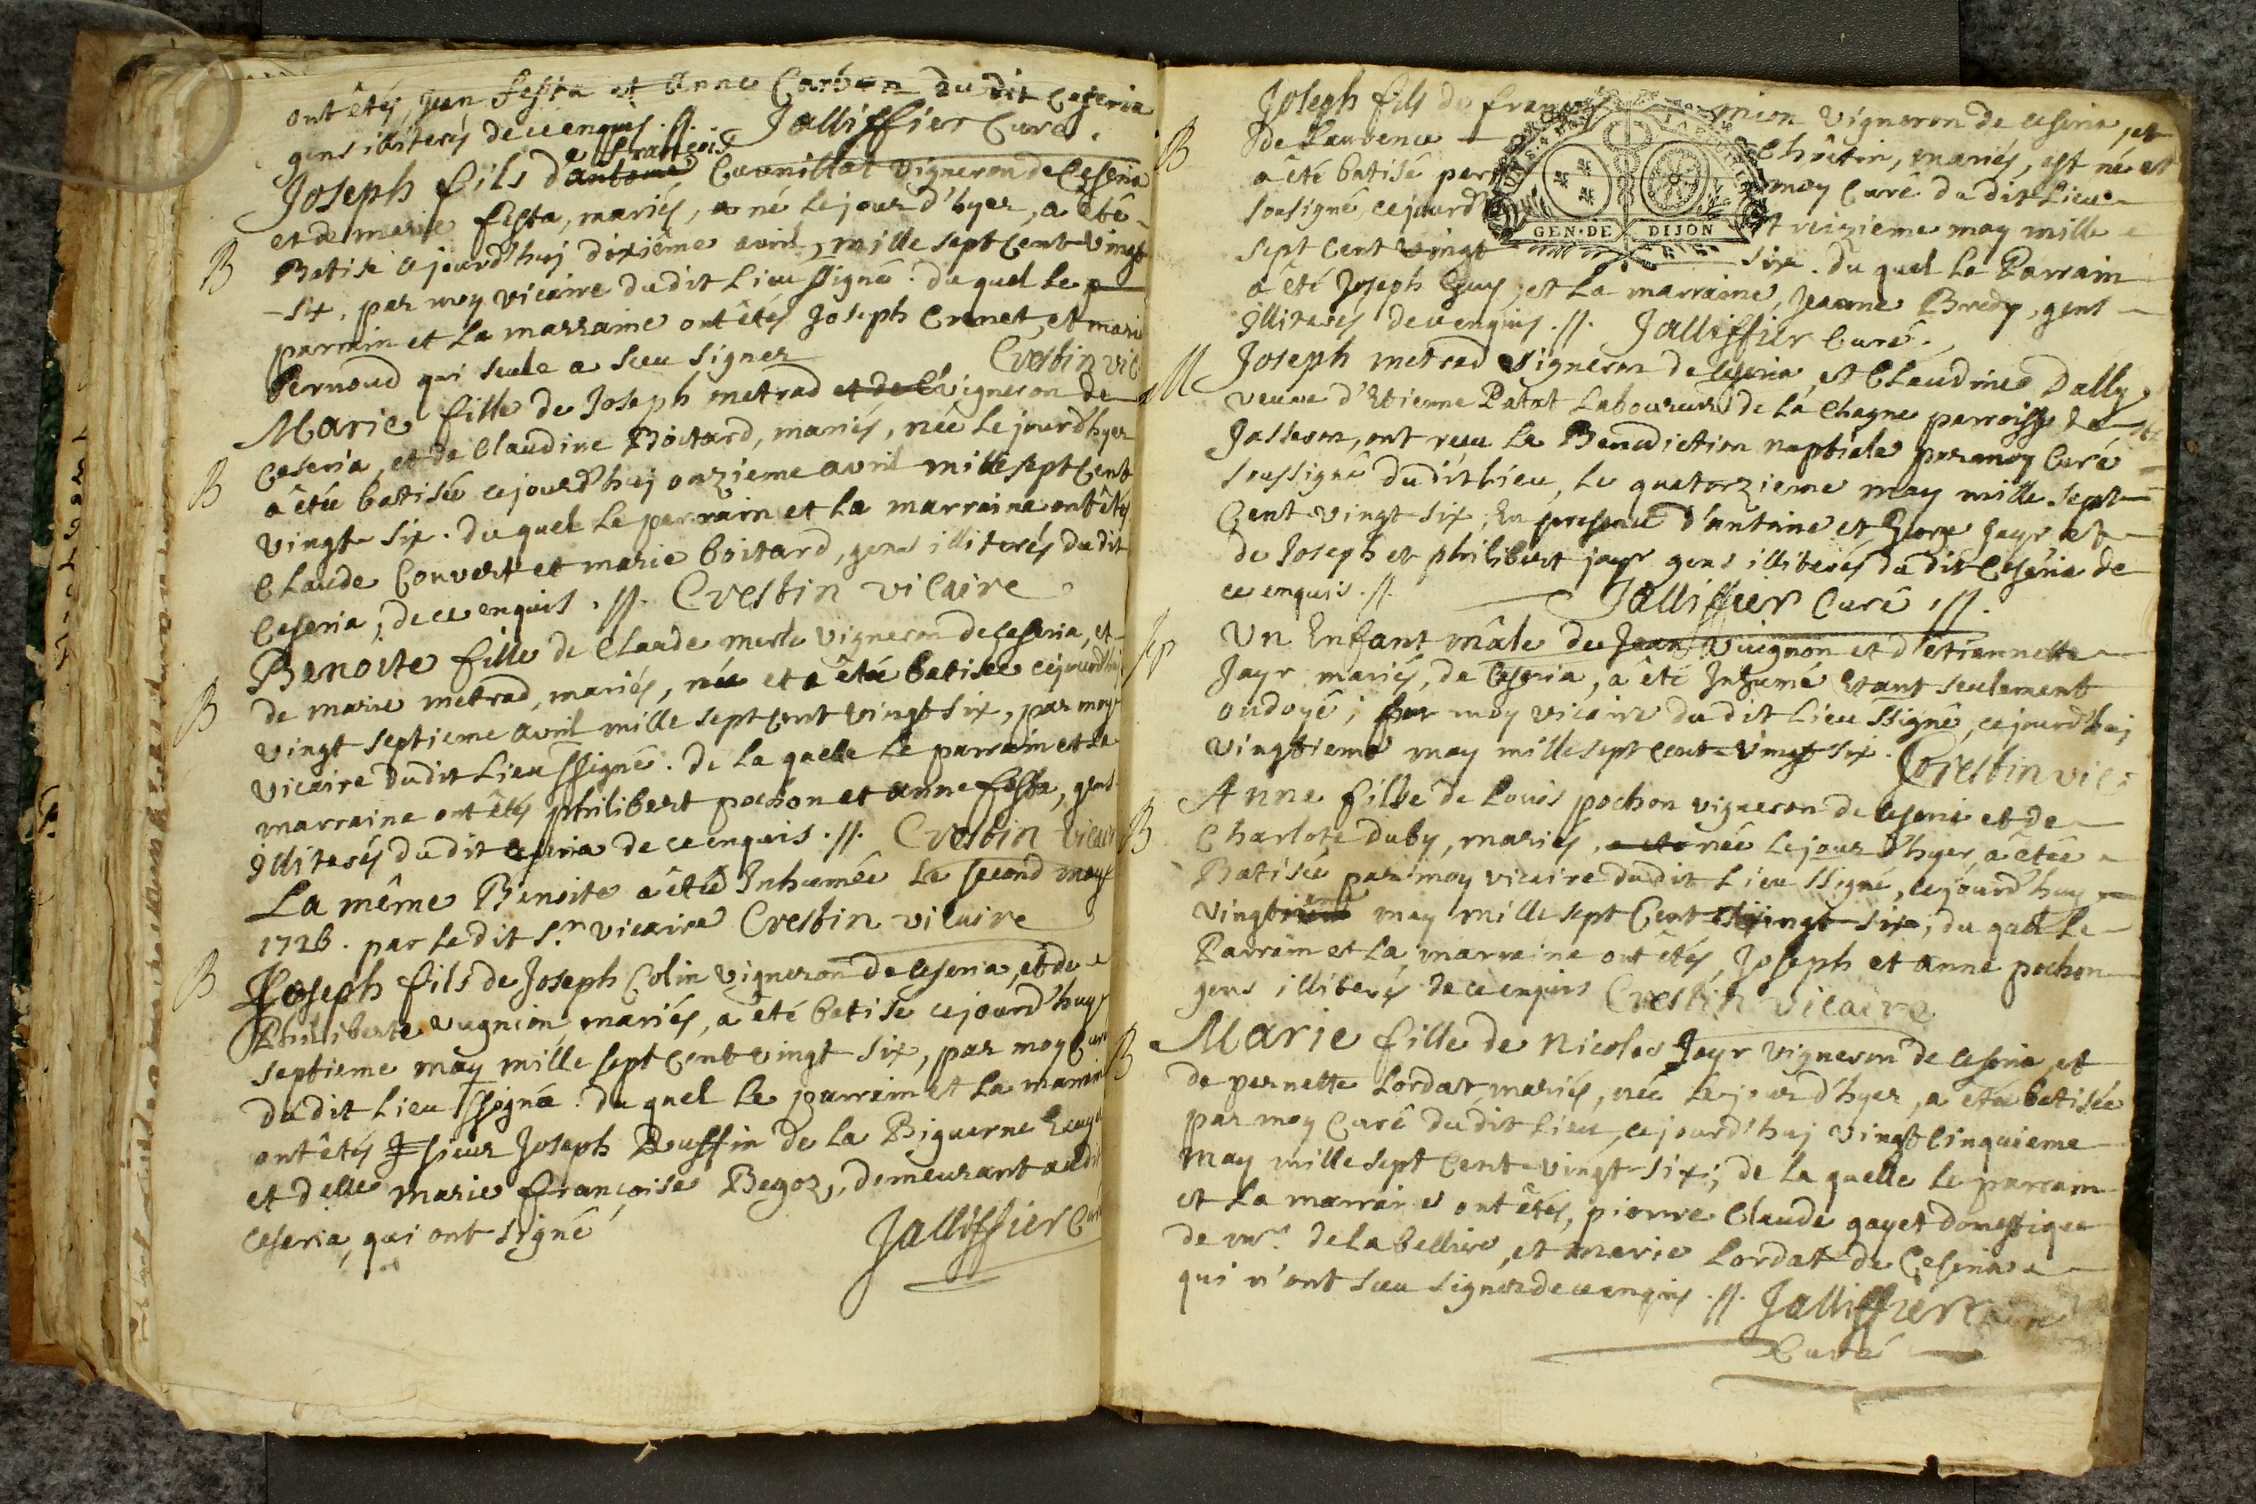 ont êtés, Jean festa et Anne Carbon du dit Ceseria
gens illiterés de ce enquis .//. Jalliffier Curé.
françois
Joseph fils d'antoine Cuvnillot vigneron de Ceseria
et de marie festa, mariés, a né le jour d'hyer, a êté
B
Batisé cejourd'huj dixième avril, mille sept Cent vingt
-six, par moy vicaire du dit Lieu ssigné. du quel le p
parrain et la marraine ont êtés Joseph Crenet, et mari
Pernoud qui seule a sceu signer Crestin vic
Marie fille de Joseph metrad et de C vigneron de
Ceseria, et de Claudine Boitard, mariés, née le jourd'hyer
B
a êtée batisée cejourd'huj onzieme avril mille sept Cent
vingt six. du quel le parrain et la marraine ont êtés
Claude Convert et marie boitard, gens illiterés du dit
Ceseria, de ce enquis .//. Crestin vicaire
Benoite fille de Claude merle vigneron de Ceseria, et
de marie metrad, mariés, née et a êtée batisée cejourd'huj
B
vingt septieme avril mille sept Cent vingt six, par moy
vicaire du dit Lieu ssigné. de la quelle le parrain et la
marraine ont êtés philibert pochon et anne festa, gens
illiterés du dit Ceseria de ce enquis .//. Crestin vicair
La même Benoite a êtée Inhumée le second may
1726. par le dit s.r vicaire Crestin vicaire
B
Joseph fils de Joseph Colin vigneron de Ceseria, et de
Philiberte vugnion mariés, a êté batisé cejourd'huy
septieme may mille sept Cent vingt six, par moy Curé
du dit Lieu ssigné. du quel le parrain et la marrain
ont êtés sieur Joseph Buffin de la Biguerne
et delle marie françoise Begoz, demeurant audit
Ceseria, qui ont signé Jalliffier Curé
Joseph fils de françois nion vigneron de Ceseria, et
B
de Laurence Chrêtin, mariés, est né et
a êté batisé par moy Curé du dit Lieu
sousigné, cejourd' treizieme may mille
GEN·DE DIJON
sept Cent vingt six. du quel le Parrain
a êté Joseph Guy, et la marraine, Jeanne Bredy, gens
Illiterés de ce enquis .//. Jalliffier Curé.
M
Joseph metrad vigneron de Ceseria, et Claudine Dally
veuve d'Etienne Patat Laboureur de la Chagne parroisse de
Jasseron, ont receu la Benediction nuptiale par moy Curé
soussigné du dit Lieu, le quatorzieme may mille sept
Cent vingt six, En presence d'antoine et George Jayr et
de Joseph et philibert jayr gens illiterés du dit Ceseria de
ce enquis .//. Jalliffier Curé .//.
Sep
Un Enfant mâle de Jean Vuignon et d'étiennette
Jayr mariés, de Ceseria, a êté Inhumé Etant seulement
ondoyé, par moy vicaire du dit Lieu ssigné, cejourd'huj
vingtieme may mille sept cent vingt six. Crestin vic:
Anne fille de Louis pochon vigneron de Ceseria et de
B
Charlote duby, mariés, a été née le jour d'hyer, a êtée
Batisée par moy vicaire du dit Lieu ssigné, cejourd'huy
vingtieme may mille sept Cent vingt six, du quel le
Parrain et la marraine ont êtés, Joseph et anne pochon
gens illiterés de ce enquis Crestin vicaire
B
Marie fille de Nicolas Jayr vigneron de Ceseria, et
de pernette Lordat, mariés, née le jour d'hyer, a êtée batisée
par moy Curé du dit Lieu, cejourd'huj vingt Cinquieme
may mille sept Cent vingt six; de la quelle le parrain
et la marraine ont êtés, pierre Claude gayet domestique
de mr. de la belliere, et marie Lordat de Ceseria
qui n'ont sceu signer de ce enquis .//. Jalliffier
Curé